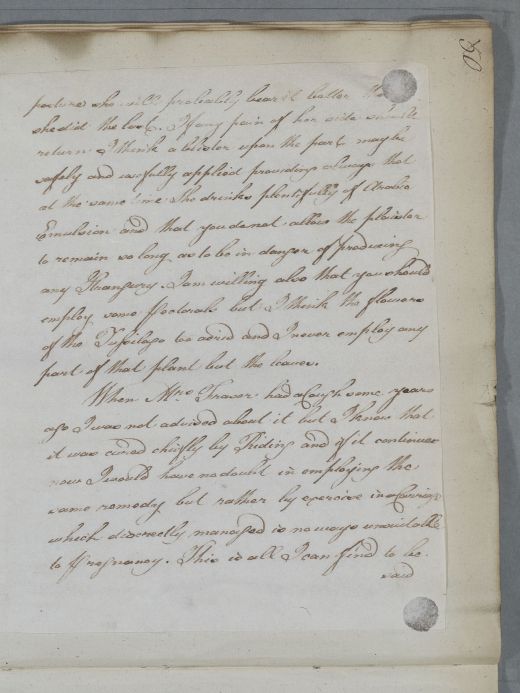 80
posture she will probably bear it better than
she did the last. If any pain of her side should
return I think a blister upon the part may be
safely and usefully applied providing always that
at the same time she drinks plentifully of Arabic
Emulsion and that you do not allow the plaister
to remain so long as to be in danger of producing
any Strangury. I am willing also that you should
employ some Pectorals but I think the flowers
of the Tussilago too acrid and I never employ any
part of that plant but the leaves.
When Mrs Fraser had a Cough some years
ago I was not advised about it but I know that
it was cured chiefly by Riding and if it continues
now I would have no doubt in employing the
same remedy but rather by exercise in a Carriage
which discreetly managed is no ways unsuitable
to Pregnancy. This is all I can find to be
said